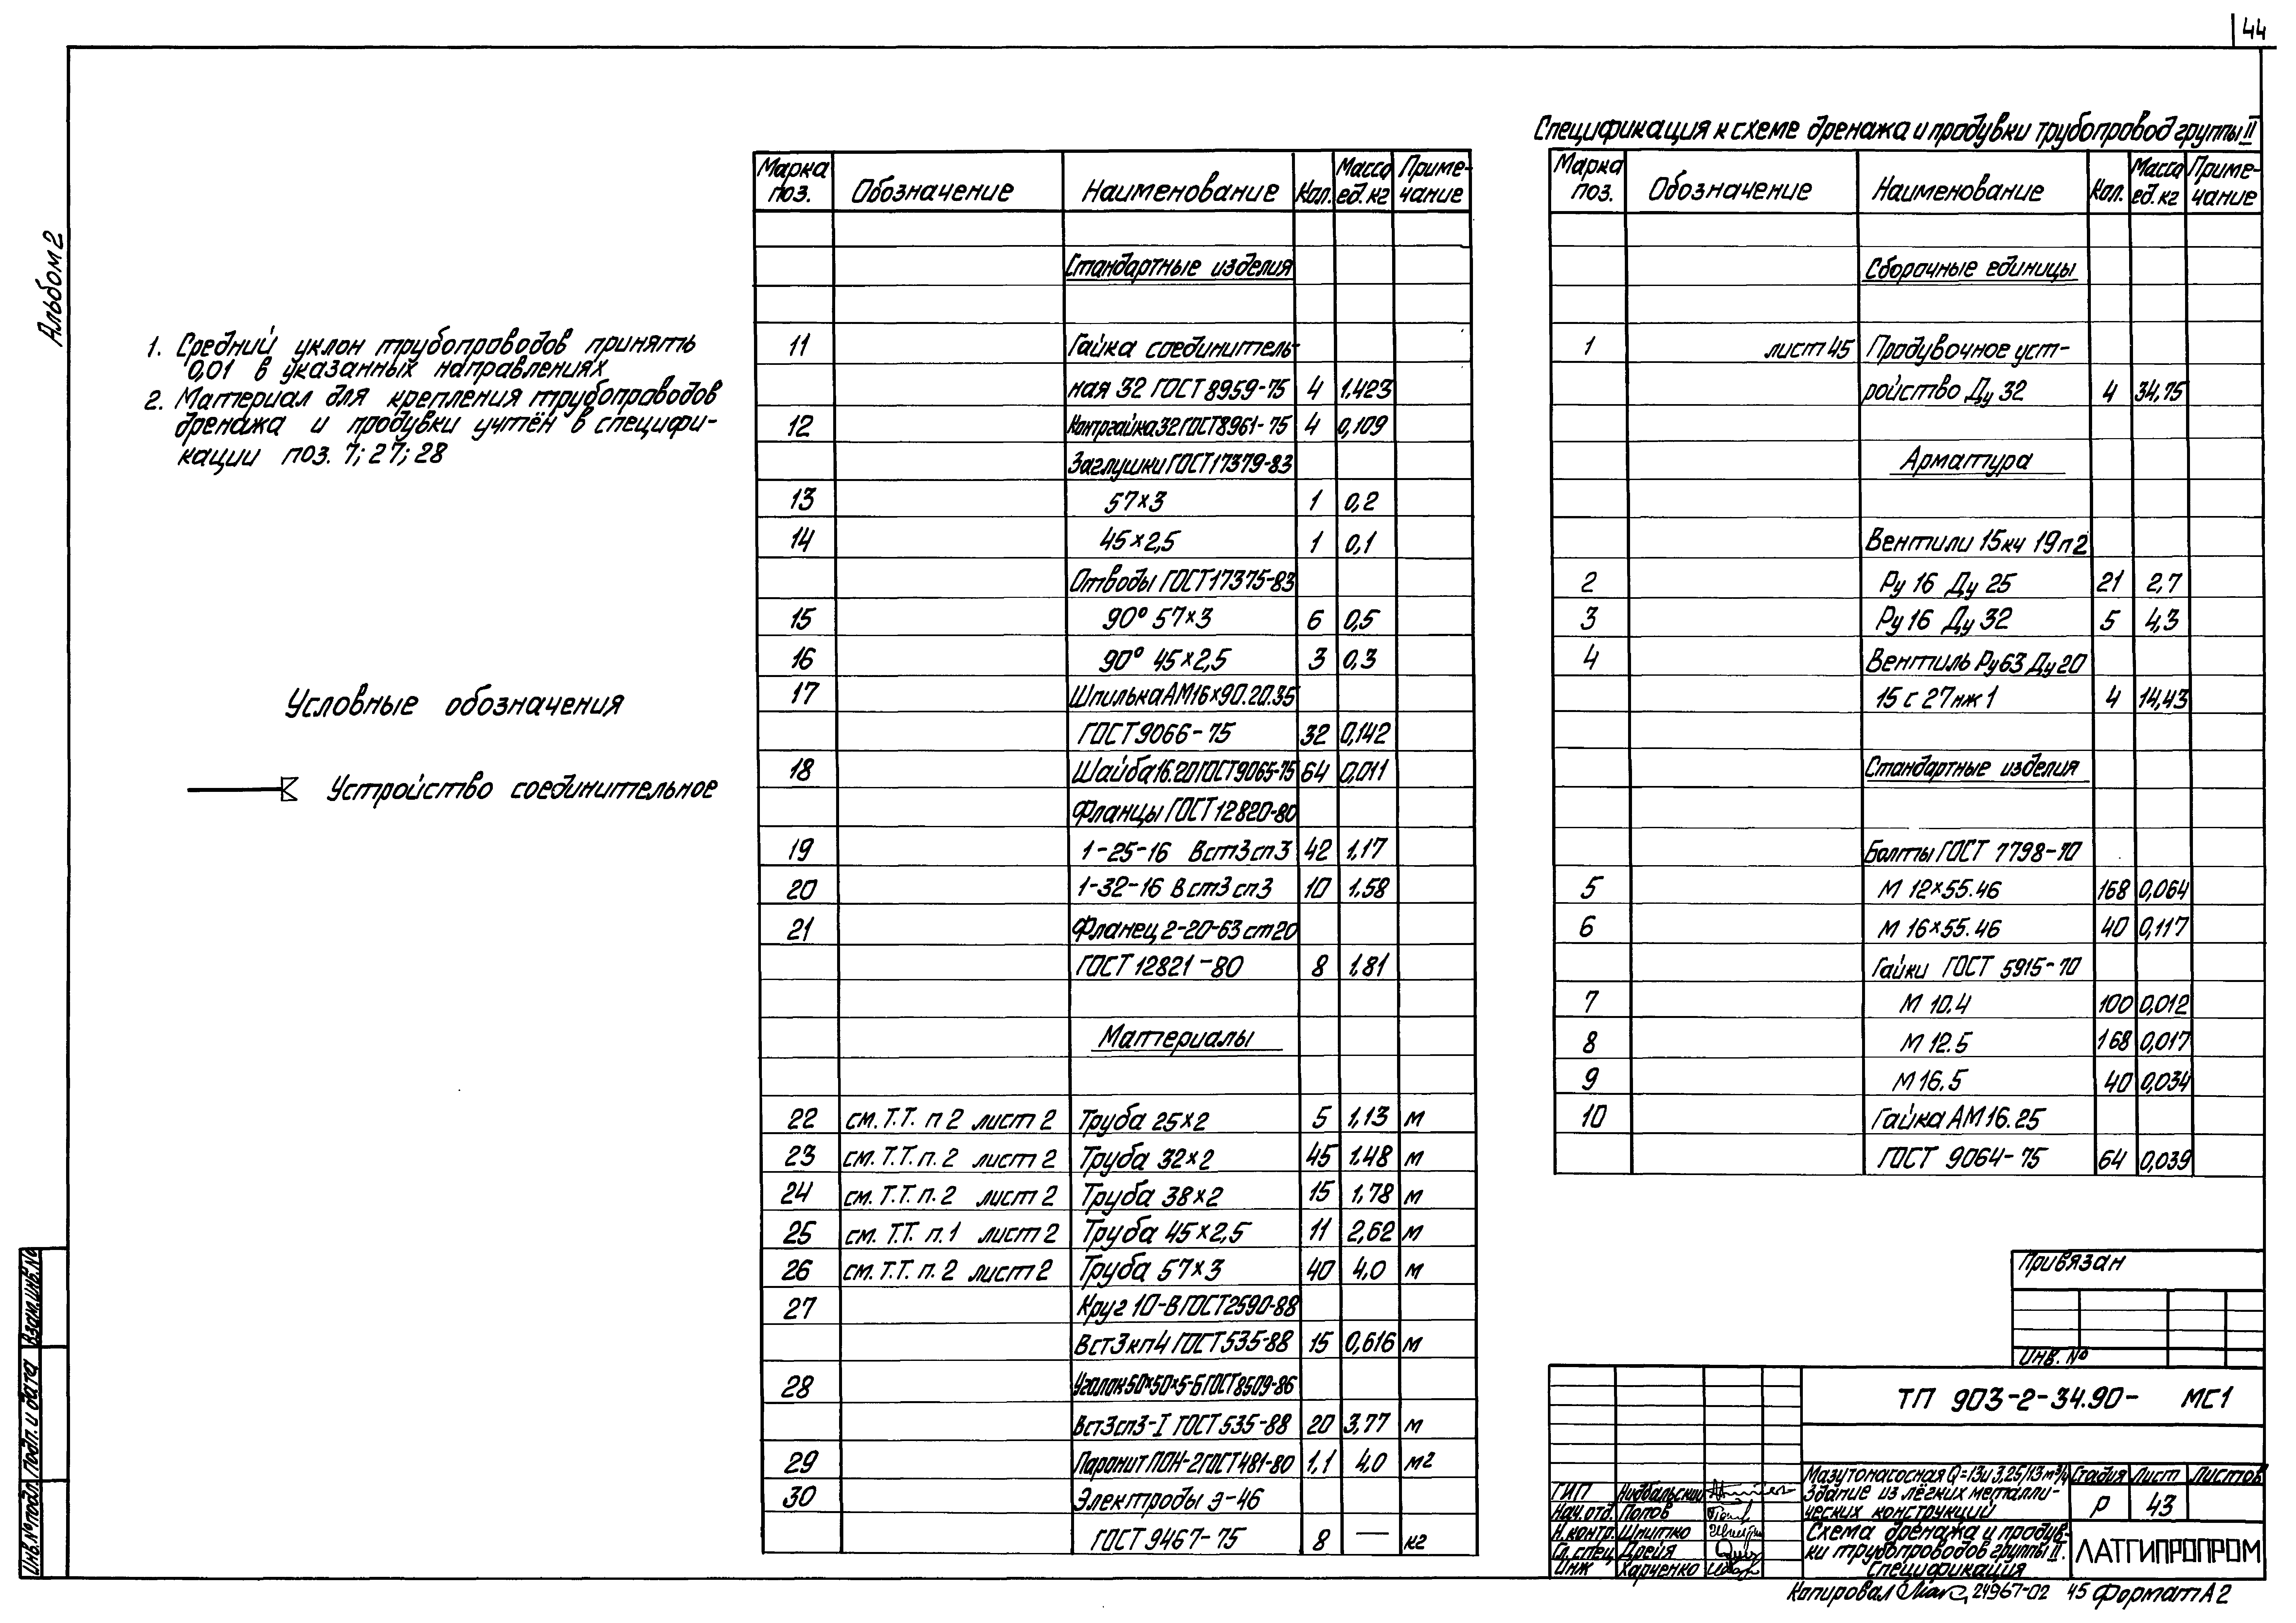 44
Альбом 2
1. Средний уклон трубопроводов принять
0,01 в указанных направлениях
2. Материал для крепления трубопроводов
дренажа и продувки учтён в специфи-
кации поз. 7; 27; 28
Условные обозначения
Устройство соединительное
Марка поз. Обозначение Наименование Кол. Масса ед. кг Приме-чание
Стандартные изделия
11 Гайка соединитель-
ная 32 ГОСТ 8959-75 4 1,423
12 Контргайка 32 ГОСТ 8961-75 4 0,109
Заглушки ГОСТ 17379-83
13 57×3 1 0,2
14 45×2,5 1 0,1
Отводы ГОСТ 17375-83
15 90° 57×3 6 0,5
16 90° 45×2,5 3 0,3
17 Шпилька АМ16×90.20.35
ГОСТ 9066-75 32 0,142
18 Шайба 16.20 ГОСТ 9065-75 64 0,011
Фланцы ГОСТ 12820-80
19 1-25-16 Вст3сп3 42 1,17
20 1-32-16 Вст3сп3 10 1.58
21 Фланец 2-20-63 ст20
ГОСТ 12821-80 8 1,81
Материалы
22 см. Т.Т. п 2 лист 2 Труба 25×2 5 1,13 м
23 см. Т.Т. п. 2 лист 2 Труба 32×2 45 1.48 м
24 см. Т.Т. п. 2 лист 2 Труба 38×2 15 1,78 м
25 см. Т.Т. п. 1 лист 2 Труба 45×2,5 11 2,62 м
26 см. Т.Т. п. 2 лист 2 Труба 57×3 40 4.0 м
27 Круг 10-В ГОСТ 2590-88
Вст3кп4 ГОСТ 535-88 15 0,616 м
28 Уголок 50×50×5-Б ГОСТ 8509-86
Вст3сп3-I ГОСТ 535-88 20 3,77 м
29 Паронит ПОН-2 ГОСТ 481-80 1,1 4,0 м2
30 Электроды э-46
ГОСТ 9467-75 8 — кг
Спецификация к схеме дренажа и продувки трубопровод группы II
Марка поз. Обозначение Наименование Кол. Масса ед. кг Приме-чание
Сборочные единицы
1 лист 45 Продувочное уст-
ройство Ду 32 4 34,75
Арматура
Вентили 15кч 19п2
2 Ру 16 Ду 25 21 2,7
3 Ру 16 Ду 32 5 4,3
4 Вентиль Ру63 Ду20
15 с 27 нж 1 4 14,43
Стандартные изделия
Болты ГОСТ 7798-70
5 М 12×55.46 168 0,064
6 М 16×55.46 40 0,117
Гайки ГОСТ 5915-70
7 М 10.4 100 0,012
8 М 12.5 168 0,017
9 М 16.5 40 0,034
10 Гайка АМ 16.25
ГОСТ 9064-75 64 0,039
Привязан
Инв. №
ТП 903-2-34.90- МС1
Мазутонасосная Q=13 и 3,25/13 м³/ч
Здание из лёгких металли-
ческих конструкций
Стадия Лист Листов
Р 43
ГИП Нидбальский
Нач. отд. Попов
Н. контр. Шнитко
Гл. спец. Дрейя
Инж Харченко
Схема дренажа и продув-
ки трубопроводов группы II.
Спецификация
ЛАТГИПРОПРОМ
Копировал 24967-02 45 Формат А2
Взам. инв. №
Подп. и дата
Инв. № подл.